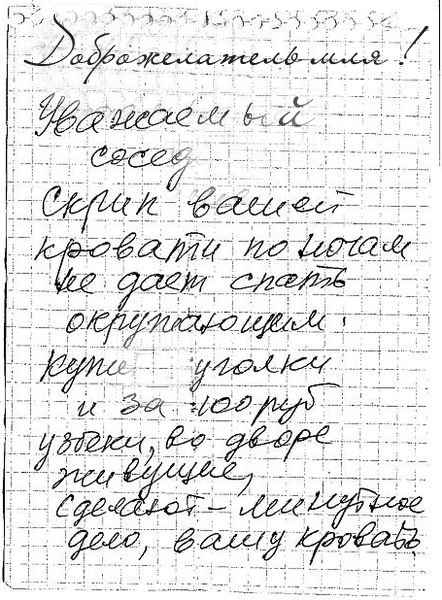 Доброжелатель мля!
Уважаемый
сосед
Скрип вашей
кровати по ночам
не дает спать
окружающим.
Купи уголки
и за 100 руб
узбеки, во дворе
живущие,
сделают - минутное
дело, вашу кровать.